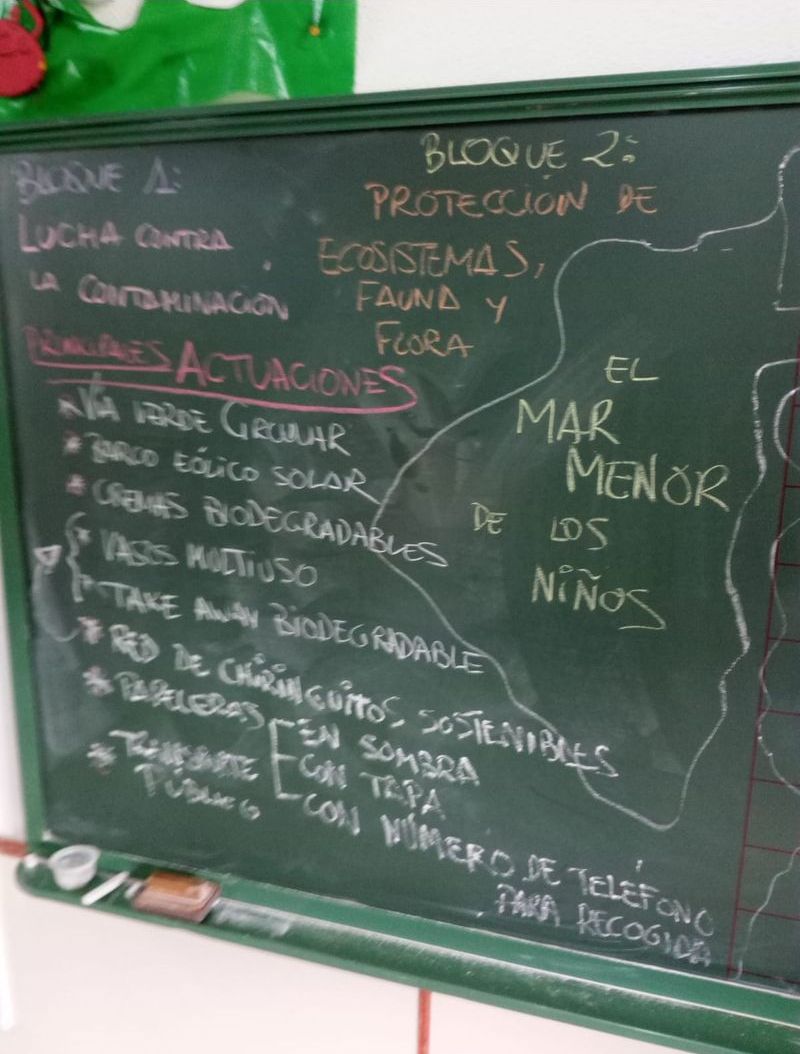 BLOQUE 1:
LUCHA CONTRA
LA CONTAMINACIÓN
PRINCIPALES ACTUACIONES
* VÍA VERDE CIRCULAR
* BARCO EÓLICO SOLAR
* CREMAS BIODEGRADABLES
* VASOS MULTIUSO
* TAKE AWAY BIODEGRADABLE
* RED DE CHIRINGUITOS SOSTENIBLES
* PAPELERAS
EN SOMBRA
CON TAPA
CON NÚMERO DE TELÉFONO
PARA RECOGIDA
* TRANSPORTE
PÚBLICO
BLOQUE 2:
PROTECCIÓN DE
ECOSISTEMAS,
FAUNA Y
FLORA
EL
MAR
MENOR
DE LOS
NIÑOS